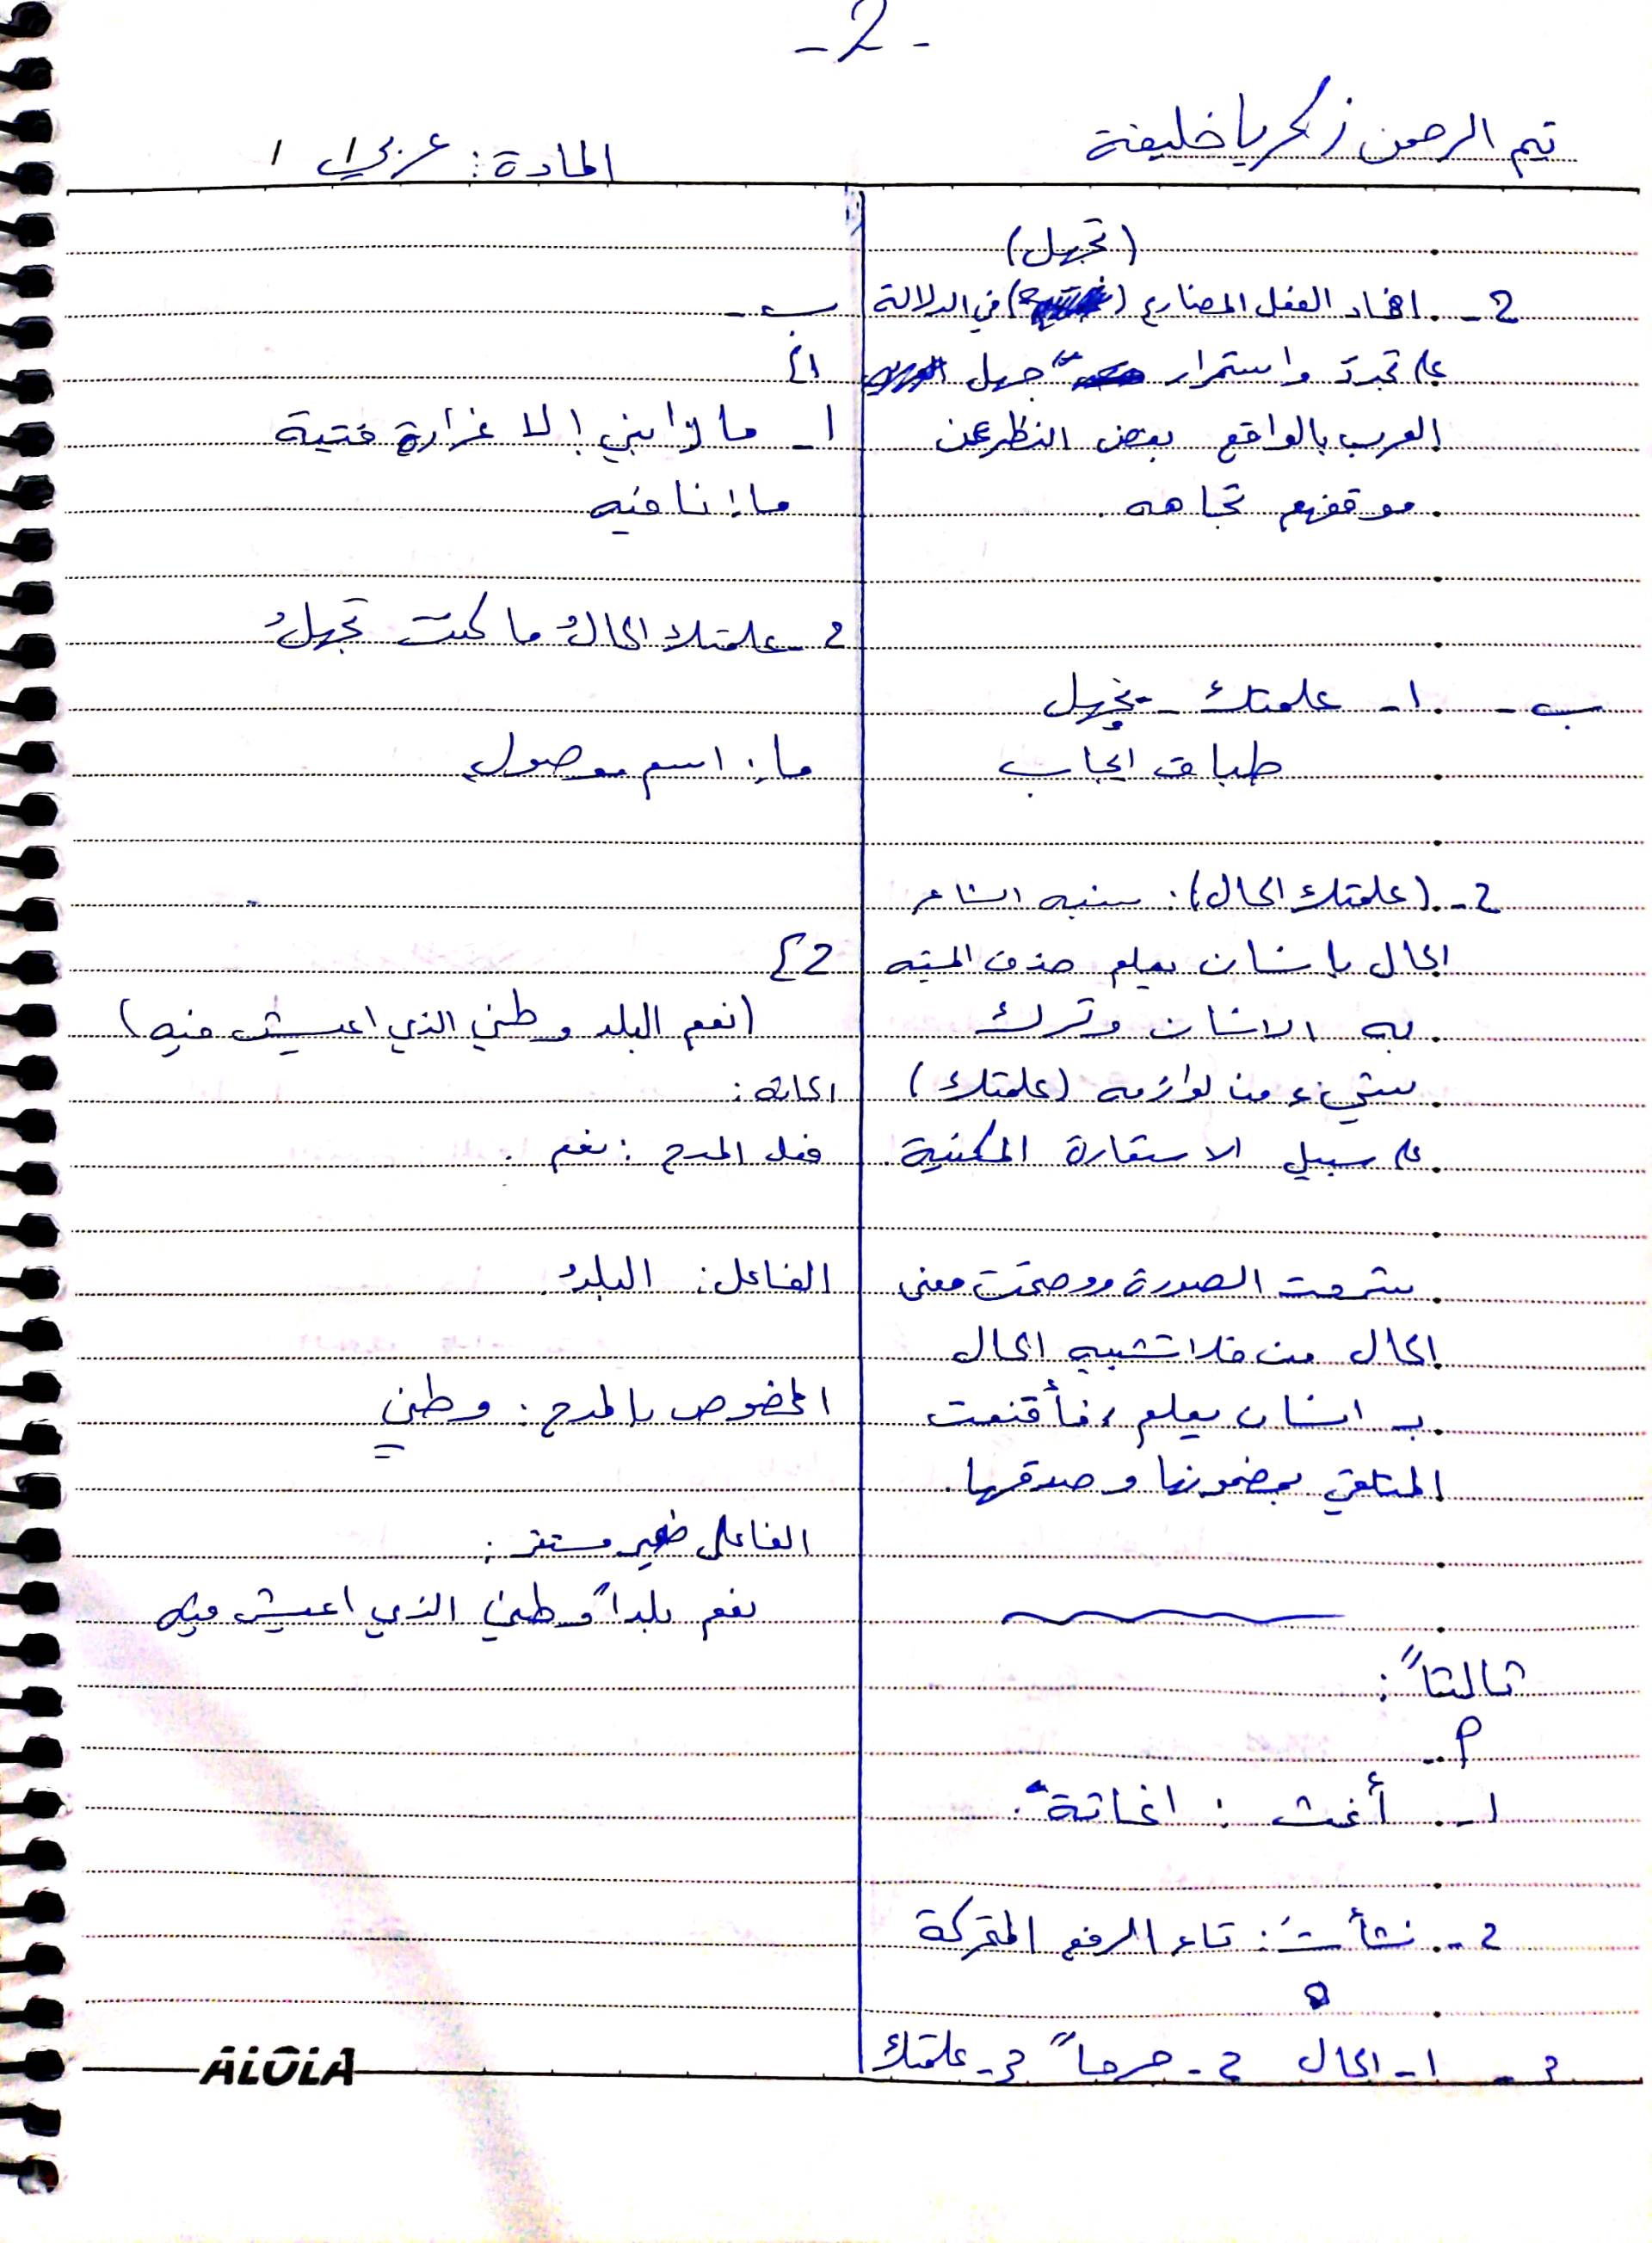 - 2 -
تيم الرحمن زكريا خليفة
المادة: عربي ١
(تجهل)
2- افاد الفعل المضارع () في الدلالة
على تجدد واستمرار جهل
العرب بالواقع بغض النظر عن
موقفهم تجاهه.
ب- ١- علمتك - تجهل
طباق ايجاب
2- (علمتك الحال): شبه الشاعر
الحال بإنسان يعلم حذف المشبه
به الانسان وترك
شيء من لوازمه (علمتك)
على سبيل الاستعارة المكنية.
شرحت الصورة ووضحت معنى
الحال من خلا تشبيه الحال
بـ انسان يعلم، فأقنعت
المتلقي بمضمونها وصدقها.
ثالثاً:
١- أغث: اغاثة.
2- نشأت: تاء الرفع المتحركة
3- ١- الحال 2- مرحاً 3- علمتك
ب-
١}
١- ما إلا غرارة فتية
ما: نافيه
2- علمتك الحالُ ما كنت تجهلُ
ما: اسم موصول
2}
(نعم البلد وطني الذي اعيش فيه)
فعل المدح: نعم.
الفاعل: البلدُ
المخصوص بالمدح: وطني
الفاعل ضمير مستتر:
نعم بلداً وطني الذي اعيش فيه
ALOLA